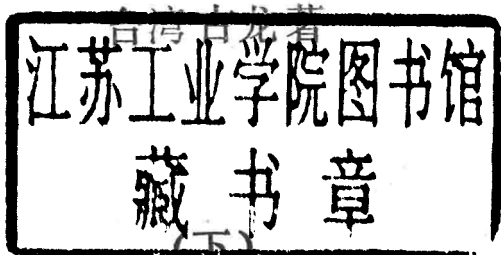 台湾 古龙著
江苏工业学院图书馆
藏书章
(下)